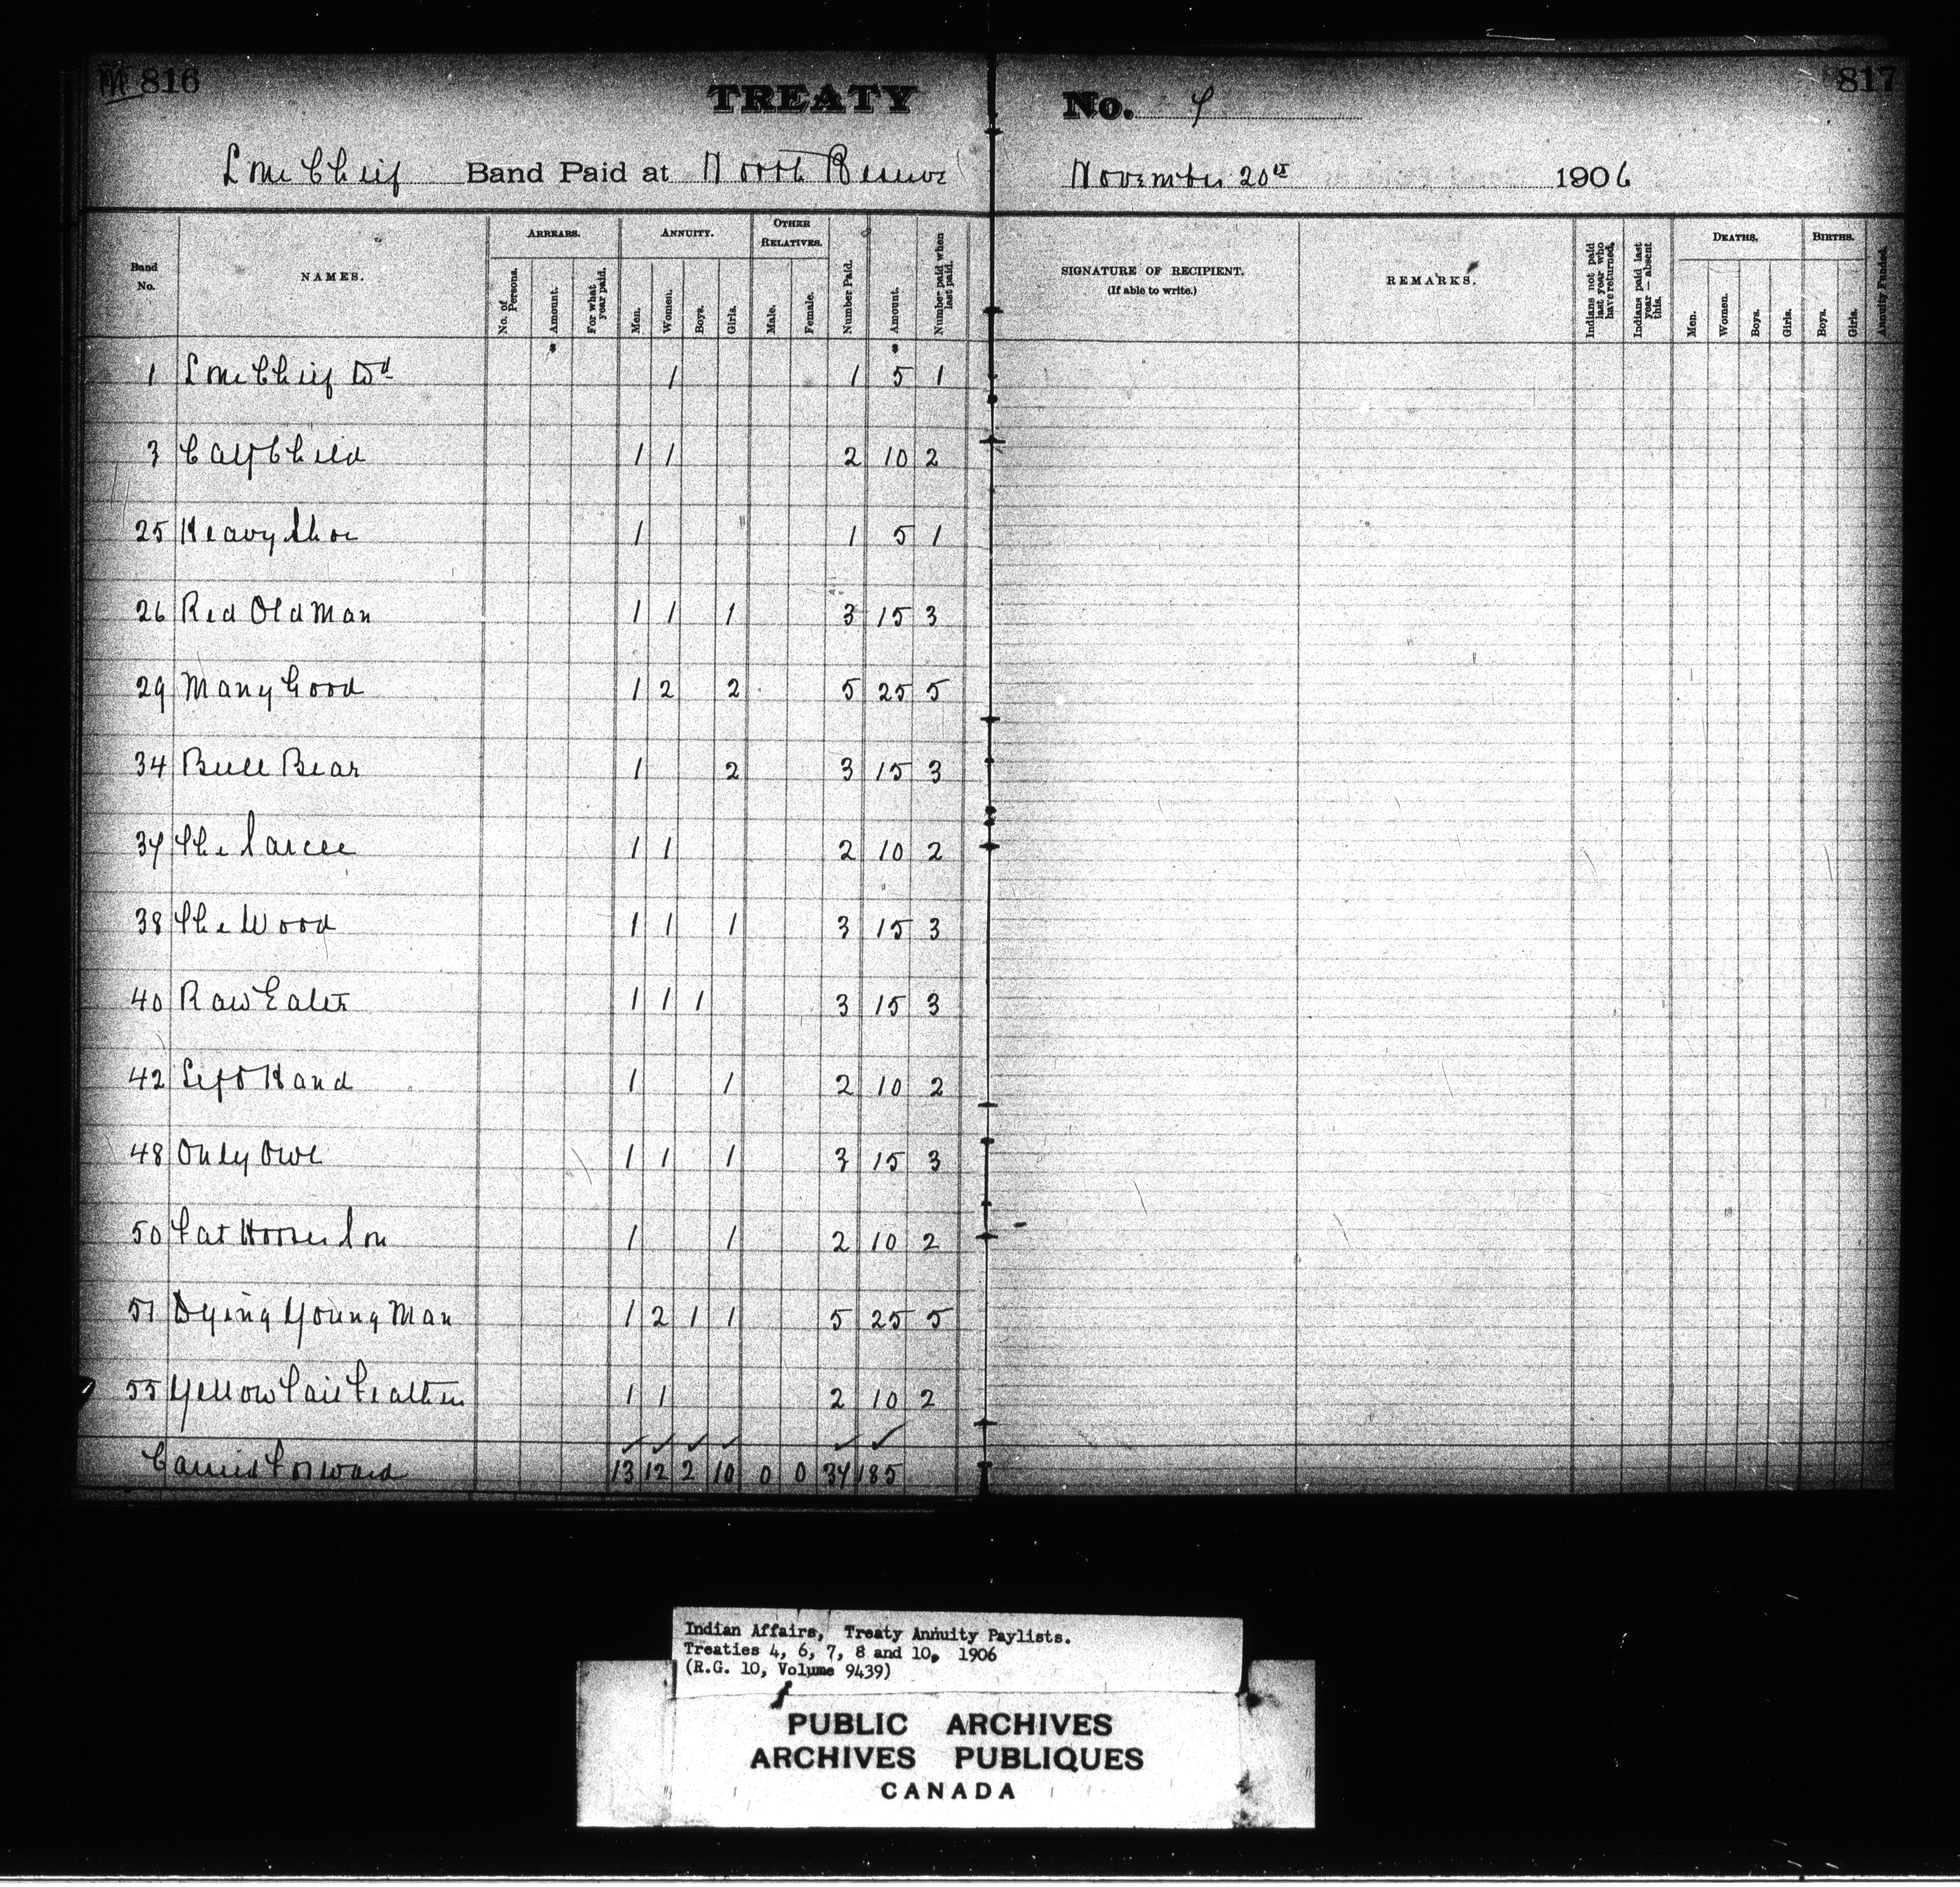 M 816
TREATY No. 7
817
Lone Chief Band Paid at North Reserve November 20th 1906
Band No.
NAMES.
ARREARS.
No. of Persons.
Amount.
For what year paid.
ANNUITY.
Men.
Women.
Boys.
Girls.
OTHER RELATIVES.
Male.
Female.
Number Paid.
Amount.
Number paid when last paid.
SIGNATURE OF RECIPIENT.
(If able to write.)
REMARKS.
Indians not paid last year who have returned.
Indians paid last year — absent this.
DEATHS.
Men.
Women.
Boys.
Girls.
BIRTHS.
Boys.
Girls.
Annuity Funded.
1 Lone Chief Wd 1 1 5 1
3 Calf Child 1 1 2 10 2
25 Heavy Shoe 1 1 5 1
26 Red Old Man 1 1 1 3 15 3
29 Many Good 1 2 2 5 25 5
34 Bull Bear 1 2 3 15 3
37 The Sarcee 1 1 2 10 2
38 The Wood 1 1 1 3 15 3
40 Raw Eater 1 1 1 3 15 3
42 Left Hand 1 1 2 10 2
48 Only Owl 1 1 1 3 15 3
50 Fat Horses Son 1 1 2 10 2
51 Dying Young Man 1 2 1 1 5 25 5
55 Yellow Tail Feathers 1 1 2 10 2
Carried Forward 13 12 2 10 0 0 37 185
Indian Affairs, Treaty Annuity Paylists.
Treaties 4, 6, 7, 8 and 10, 1906
(R.G. 10, Volume 9439)
PUBLIC ARCHIVES
ARCHIVES PUBLIQUES
CANADA